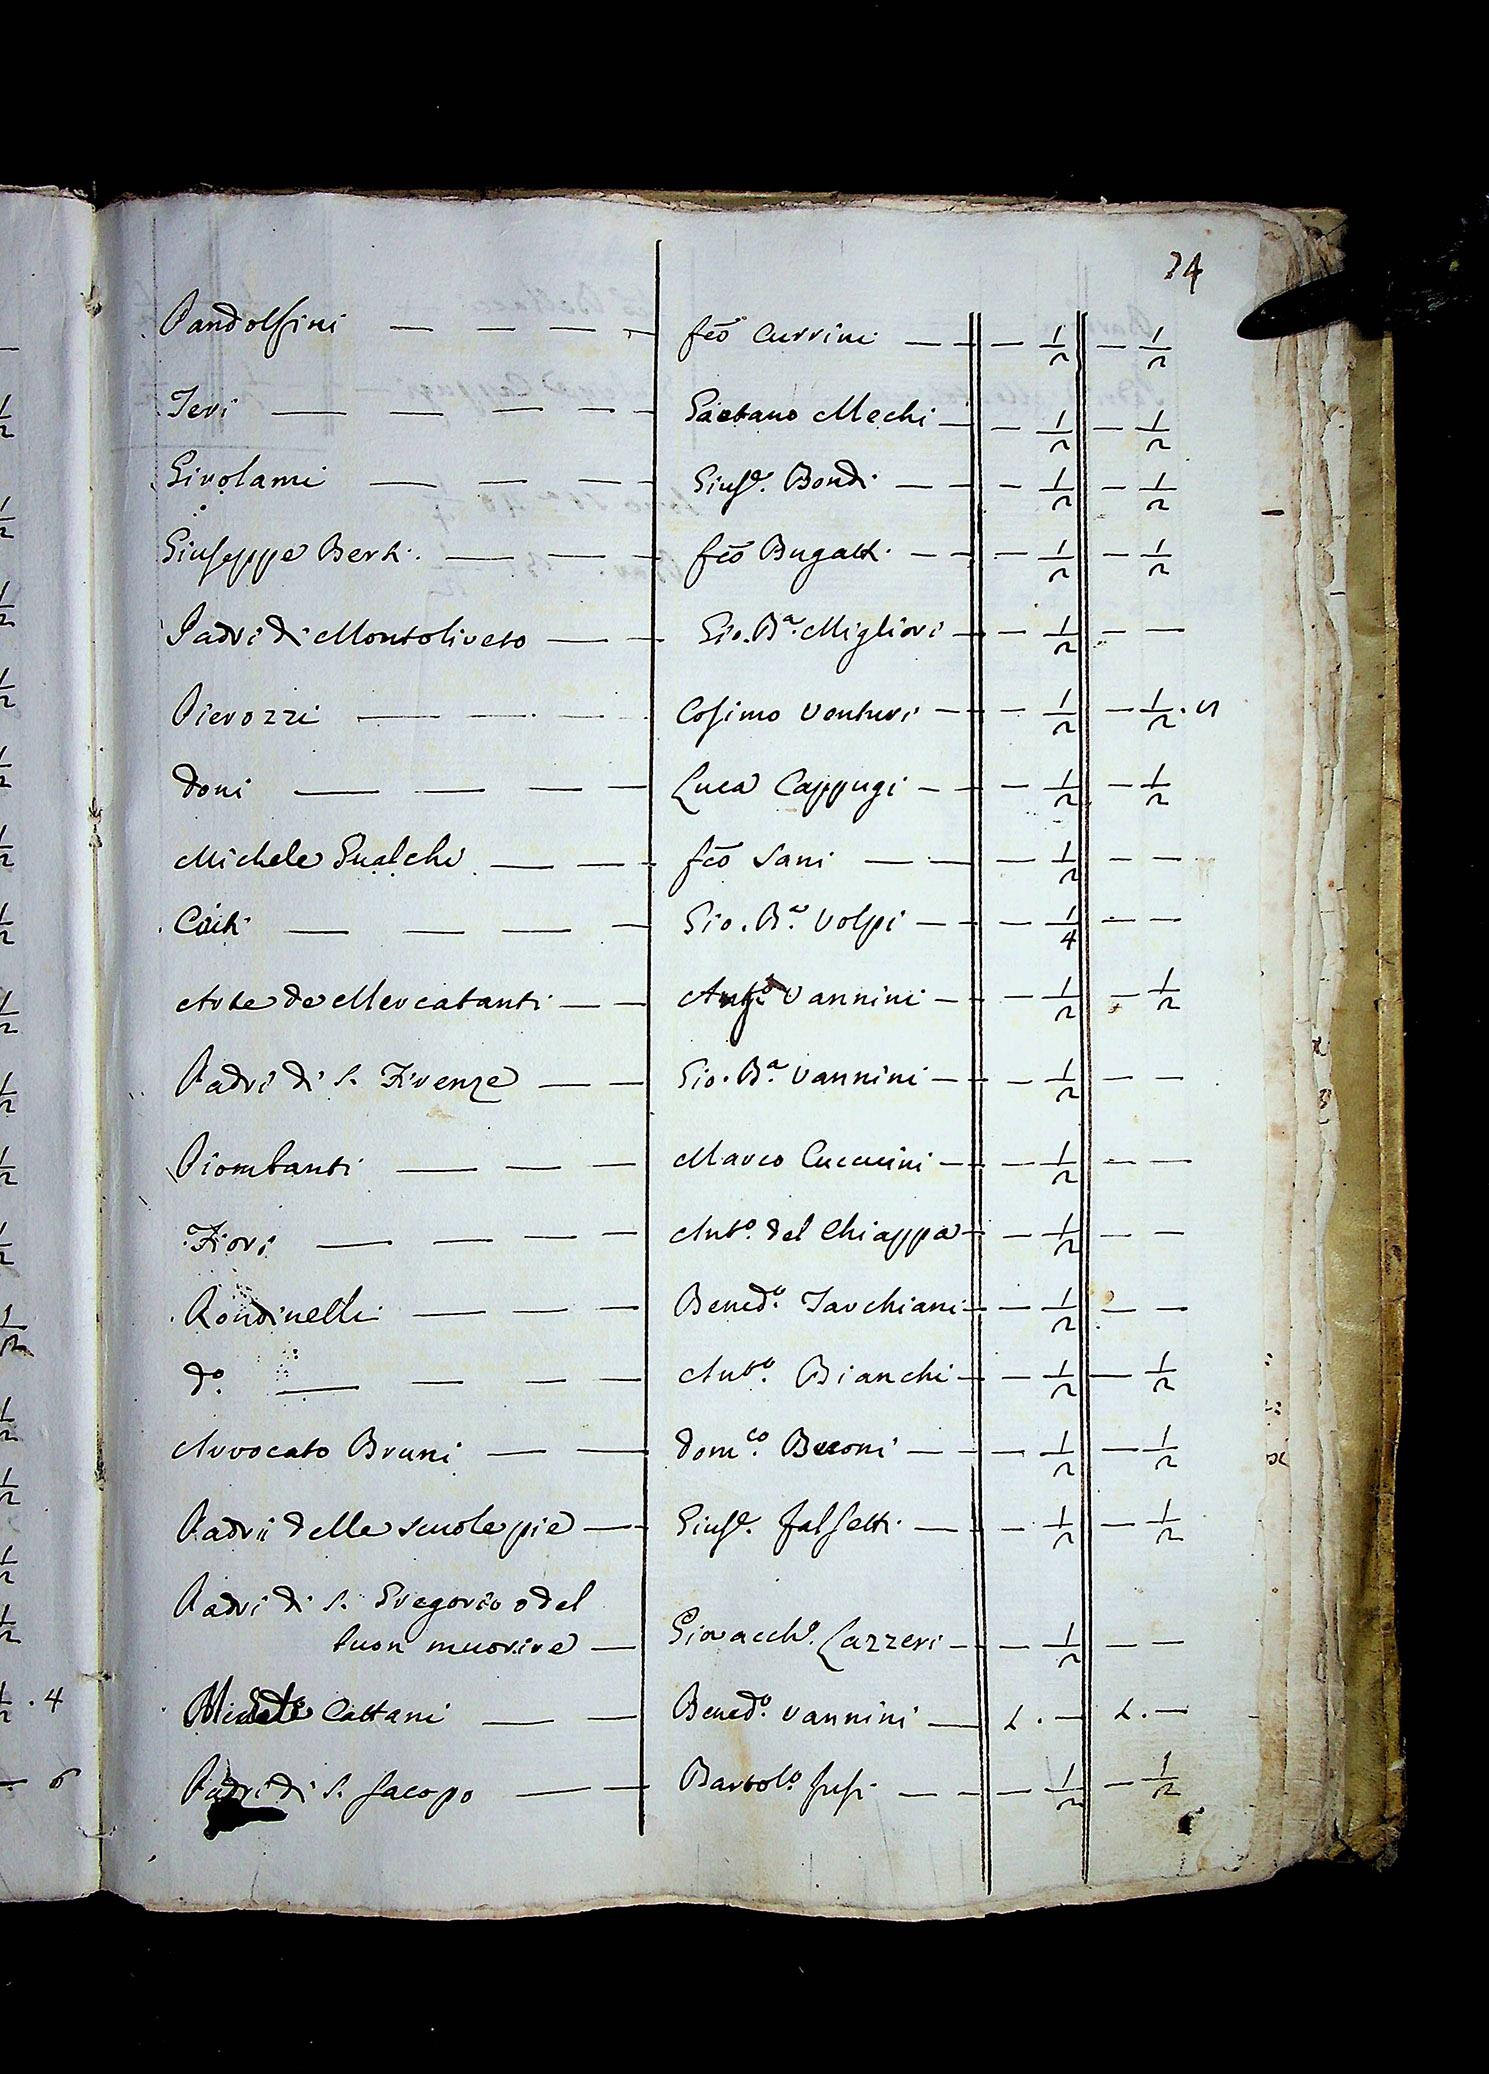 24
Pandolfini — — — — fcō Currini — — ½ — ½
Teri — — — — — Gaetano Mechi — — ½ — ½
Girolami — — — Giuse. Bondi — — — ½ — ½
Giuseppe Berti. — — — fcō Bugatti — — — ½ — ½
Padri di Montoliveto — — Gio. Ba. Migliori — — ½ — —
Pierozzi — — — — Cosimo Venturi — — ½ — ½. 5
Doni — — — — Luca Cappugi — — — ½ — ½
Michele Gualchi — — fcō Sani — — — ½ — —
Ciuti — — — — Gio. Ba. Volpi — — — ¼ — —
Arte de Mercatanti — — Anto. Vannini — — ½ — ½
Padri di S. Firenze — — Gio. Ba. Vannini — — ½ — —
Piombanti — — — Marco Cuccuini — — ½ — —
Fiori — — — — Anto. del Chiappa — — ½ — —
Rondinelli — — — Benedo. Tarchiani — — ½ — —
do. — — — — Anto. Bianchi — — ½ — ½
Avvocato Bruni — — Domco. Becconi — — — ½ — ½
Padri delle scuole pie — Giuse. falsetti — — — ½ — ½
Padri di S. Gregorio o del
buon morire — Gioaccho. Lazzeri — — ½ — —
Cattani — — Benedo. Vannini — L. — L. —
Padri di S. Jacopo — — Bartolo. fusi — — — ½ — ½